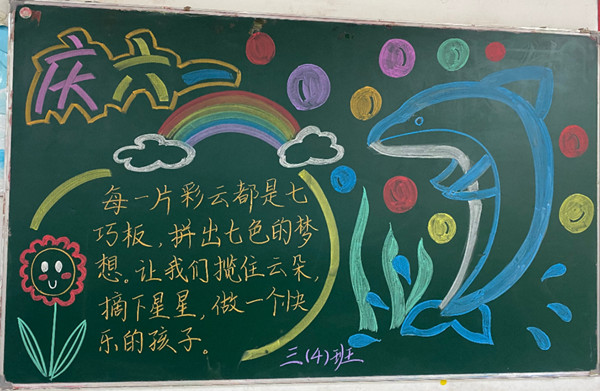 庆六一
每一片彩云都是七
巧板，拼出七色的梦
想。让我们揽住云朵，
摘下星星，做一个快
乐的孩子。
三(4)班